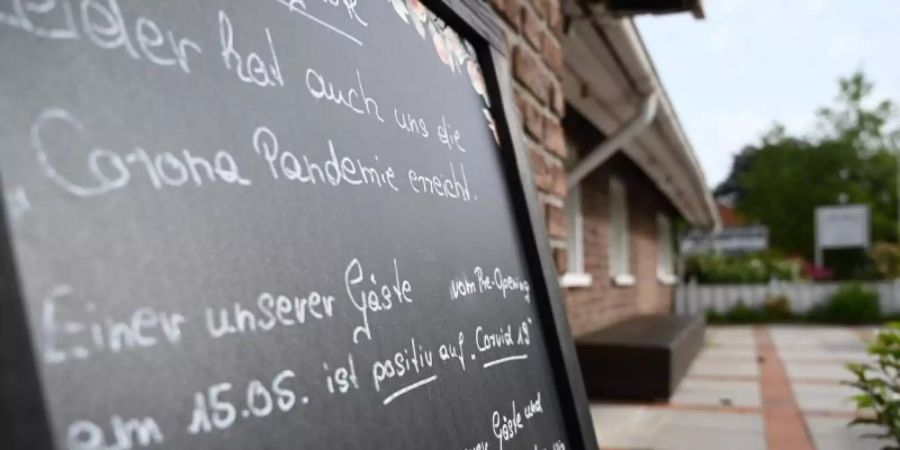 Leider hat auch uns die
Corona Pandemie erreicht.
Einer unserer Gäste vom Pre-Opening
am 15.05. ist positiv auf "Corvid 19"
Gäste und